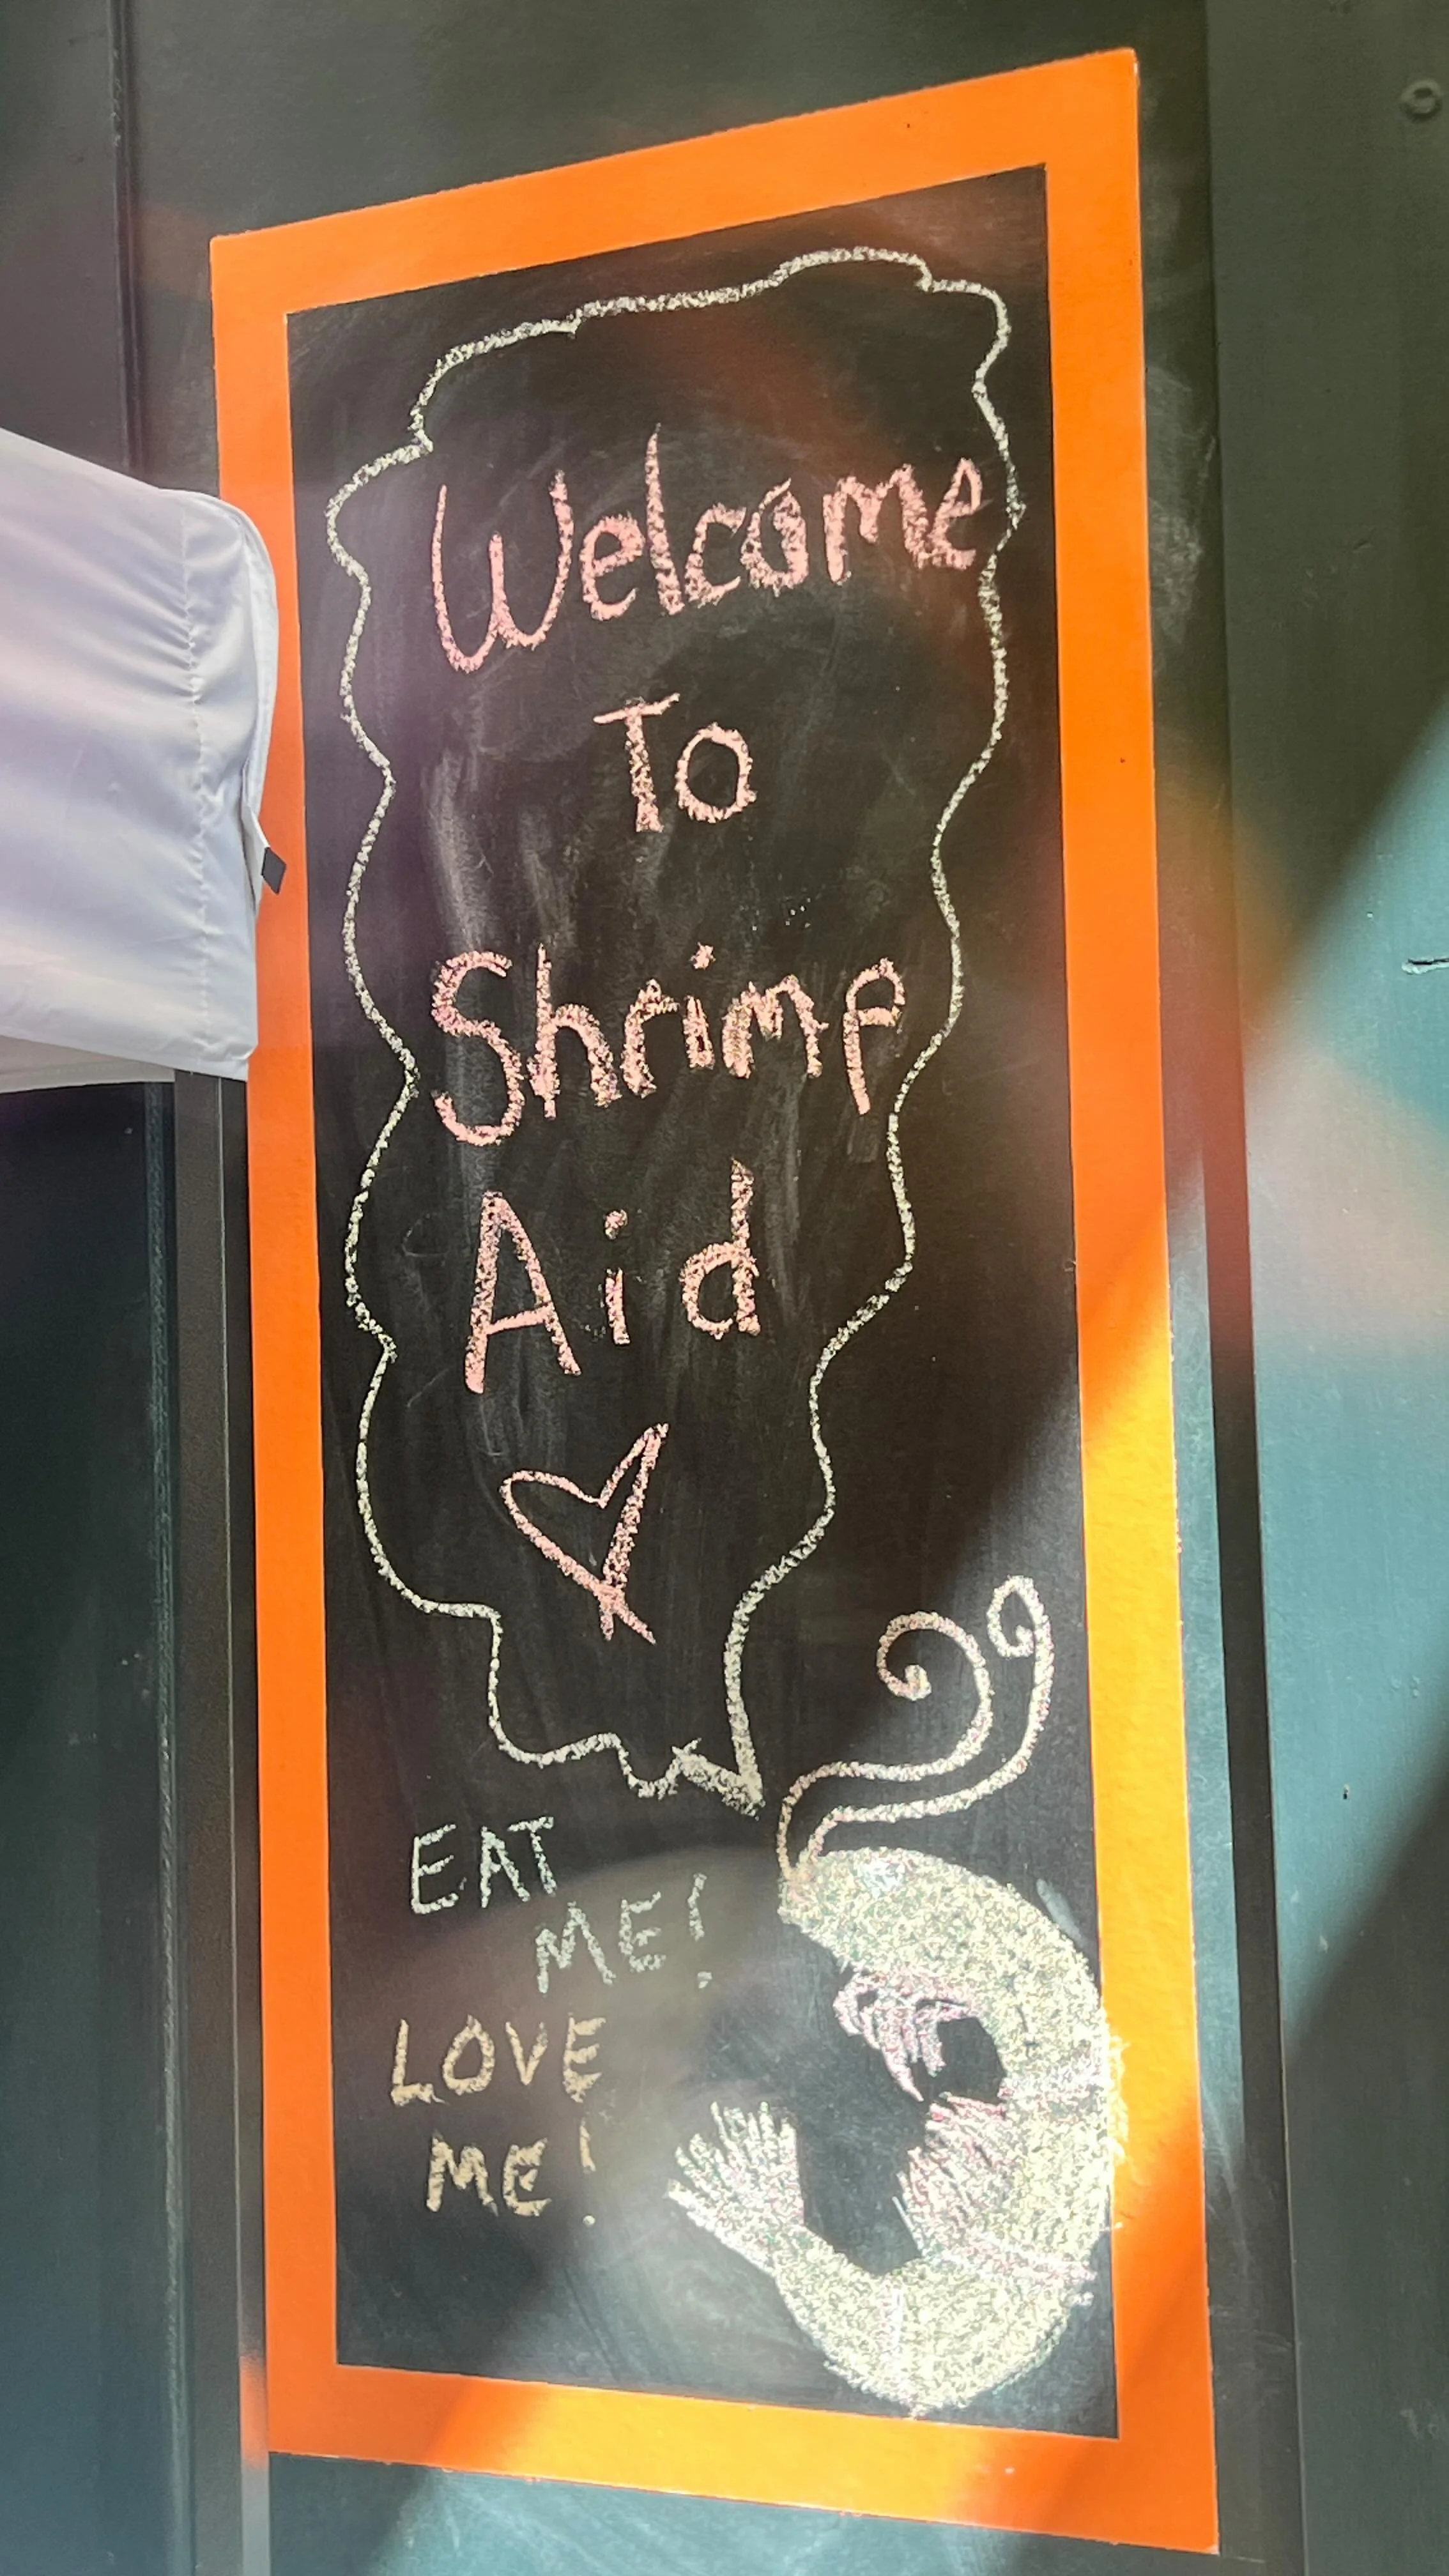 Welcome
To
Shrimp
Aid
EAT
ME!
LOVE
ME!